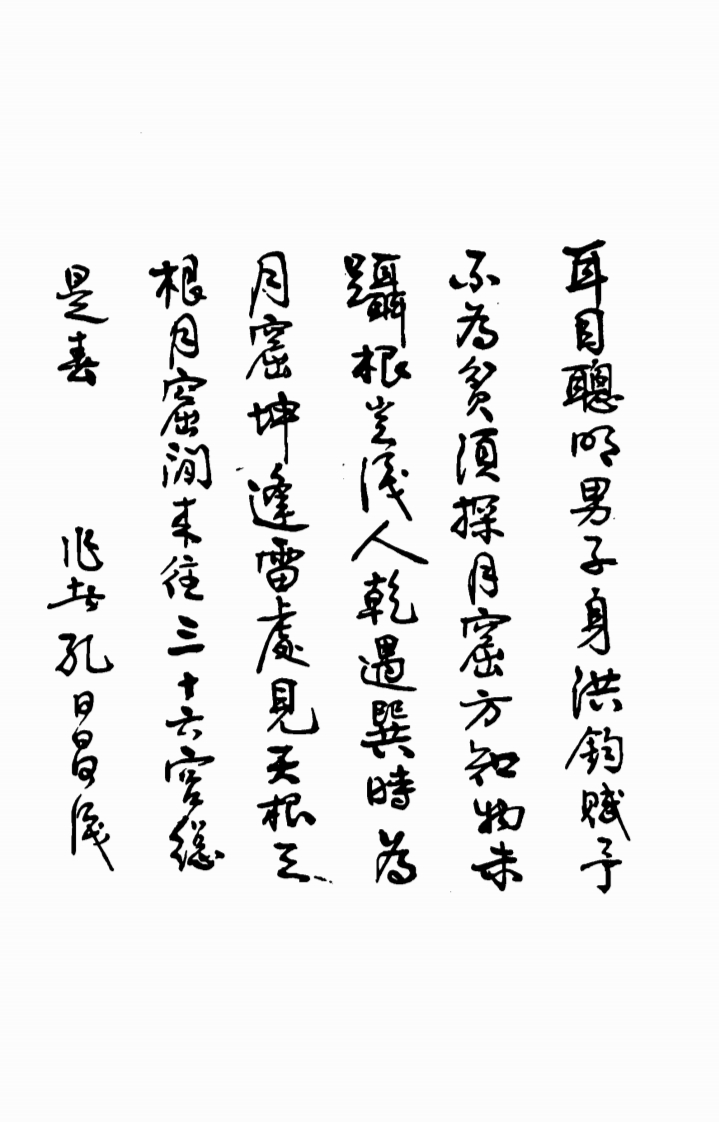 耳目聰明男子身洪鈞賦予
不為貧須探月窟方知物未
躡根豈識人乾遇巽時為
月窟坤逢雷處見天根天
根月窟閒来往三十六宮總
是春 孔